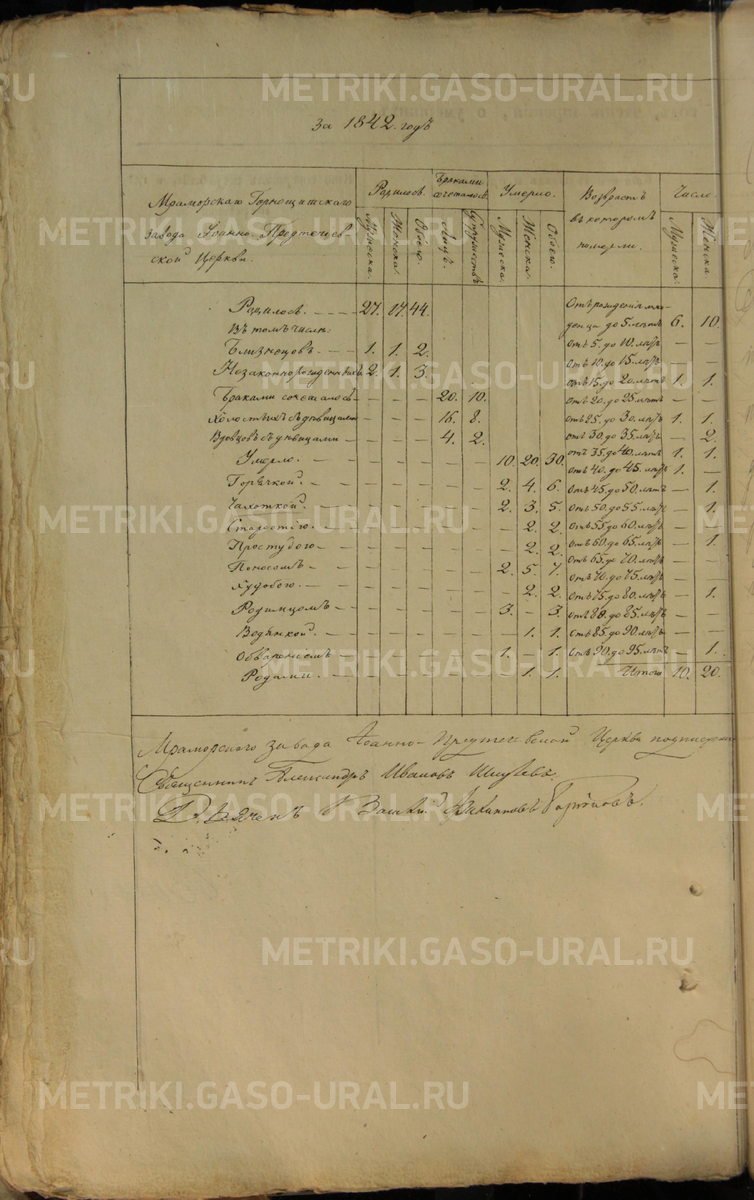 за 1842. годъ
Мраморскаго Горнощитскаго завода Іоанно-Предтечевской Церкви. | Родилось. | Браками сочеталось | Умерло. | Возрастъ въ которомъ померли. | Число
Мужеска. | Женска. | Обоего. | Лицъ. | Супружествъ | Мужеска. | Женска. | Обоего. | Мужеска. | Женска
Родилось. — 27. 17. 44. | Отъ рожденія младенца до 5. лѣтъ 6. 10.
Въ томъ числѣ: | отъ 5. до 10. лѣтъ — —
Близнецовъ. — 1. 1. 2. | отъ 10 до 15. лѣтъ — —
Незаконнорожденныхъ 2. 1. 3. | отъ 15. до 20. лѣтъ 1. 1.
Браками сочеталось — — — 20. 10. | отъ 20. до 25 лѣтъ — —
Холостыхъ съ дѣвицами — — — 16. 8. | отъ 25. до 30. лѣтъ 1. 1.
Вдовцовъ съ дѣвицами — — — 4. 2. | отъ 30. до 35. лѣтъ — 2.
Умерло. — — — — — 10. 20. 30. | отъ 35. до 40. лѣтъ 1. 1.
отъ 40. до 45. лѣтъ 1. —
Горячкой. — — — — — 2. 4. 6. | отъ 45. до 50. лѣтъ — 1.
Чахоткой. — — — — — 2. 3. 5. | отъ 50. до 55. лѣтъ — 1.
Старостію. — — — — — — 2. 2. | отъ 55 до 60. лѣтъ — —
Простудою — — — — — — 2. 2. | отъ 60. до 65. лѣтъ — 1.
Поносомъ — — — — — 2. 5. 7. | отъ 65. до 70. лѣтъ — —
отъ 70. до 75. лѣтъ — —
Худобою. — — — — — — 2. 2. | отъ 75. до 80. лѣтъ — 1.
Родимцомъ — — — — — 3. — 3. | отъ 80. до 85. лѣтъ — —
Водянкой. — — — — — — 1. 1. | отъ 85. до 90. лѣтъ — —
Обвареніемъ — — — — — 1. — 1. | отъ 90. до 95. лѣтъ — 1.
Родами — — — — — — 1. 1. | Итого 10. 20.
Мраморского завода Іоанно-Предтечевской Церкви
Священникъ Александръ Ивановъ
METRIKI.GASO-URAL.RU